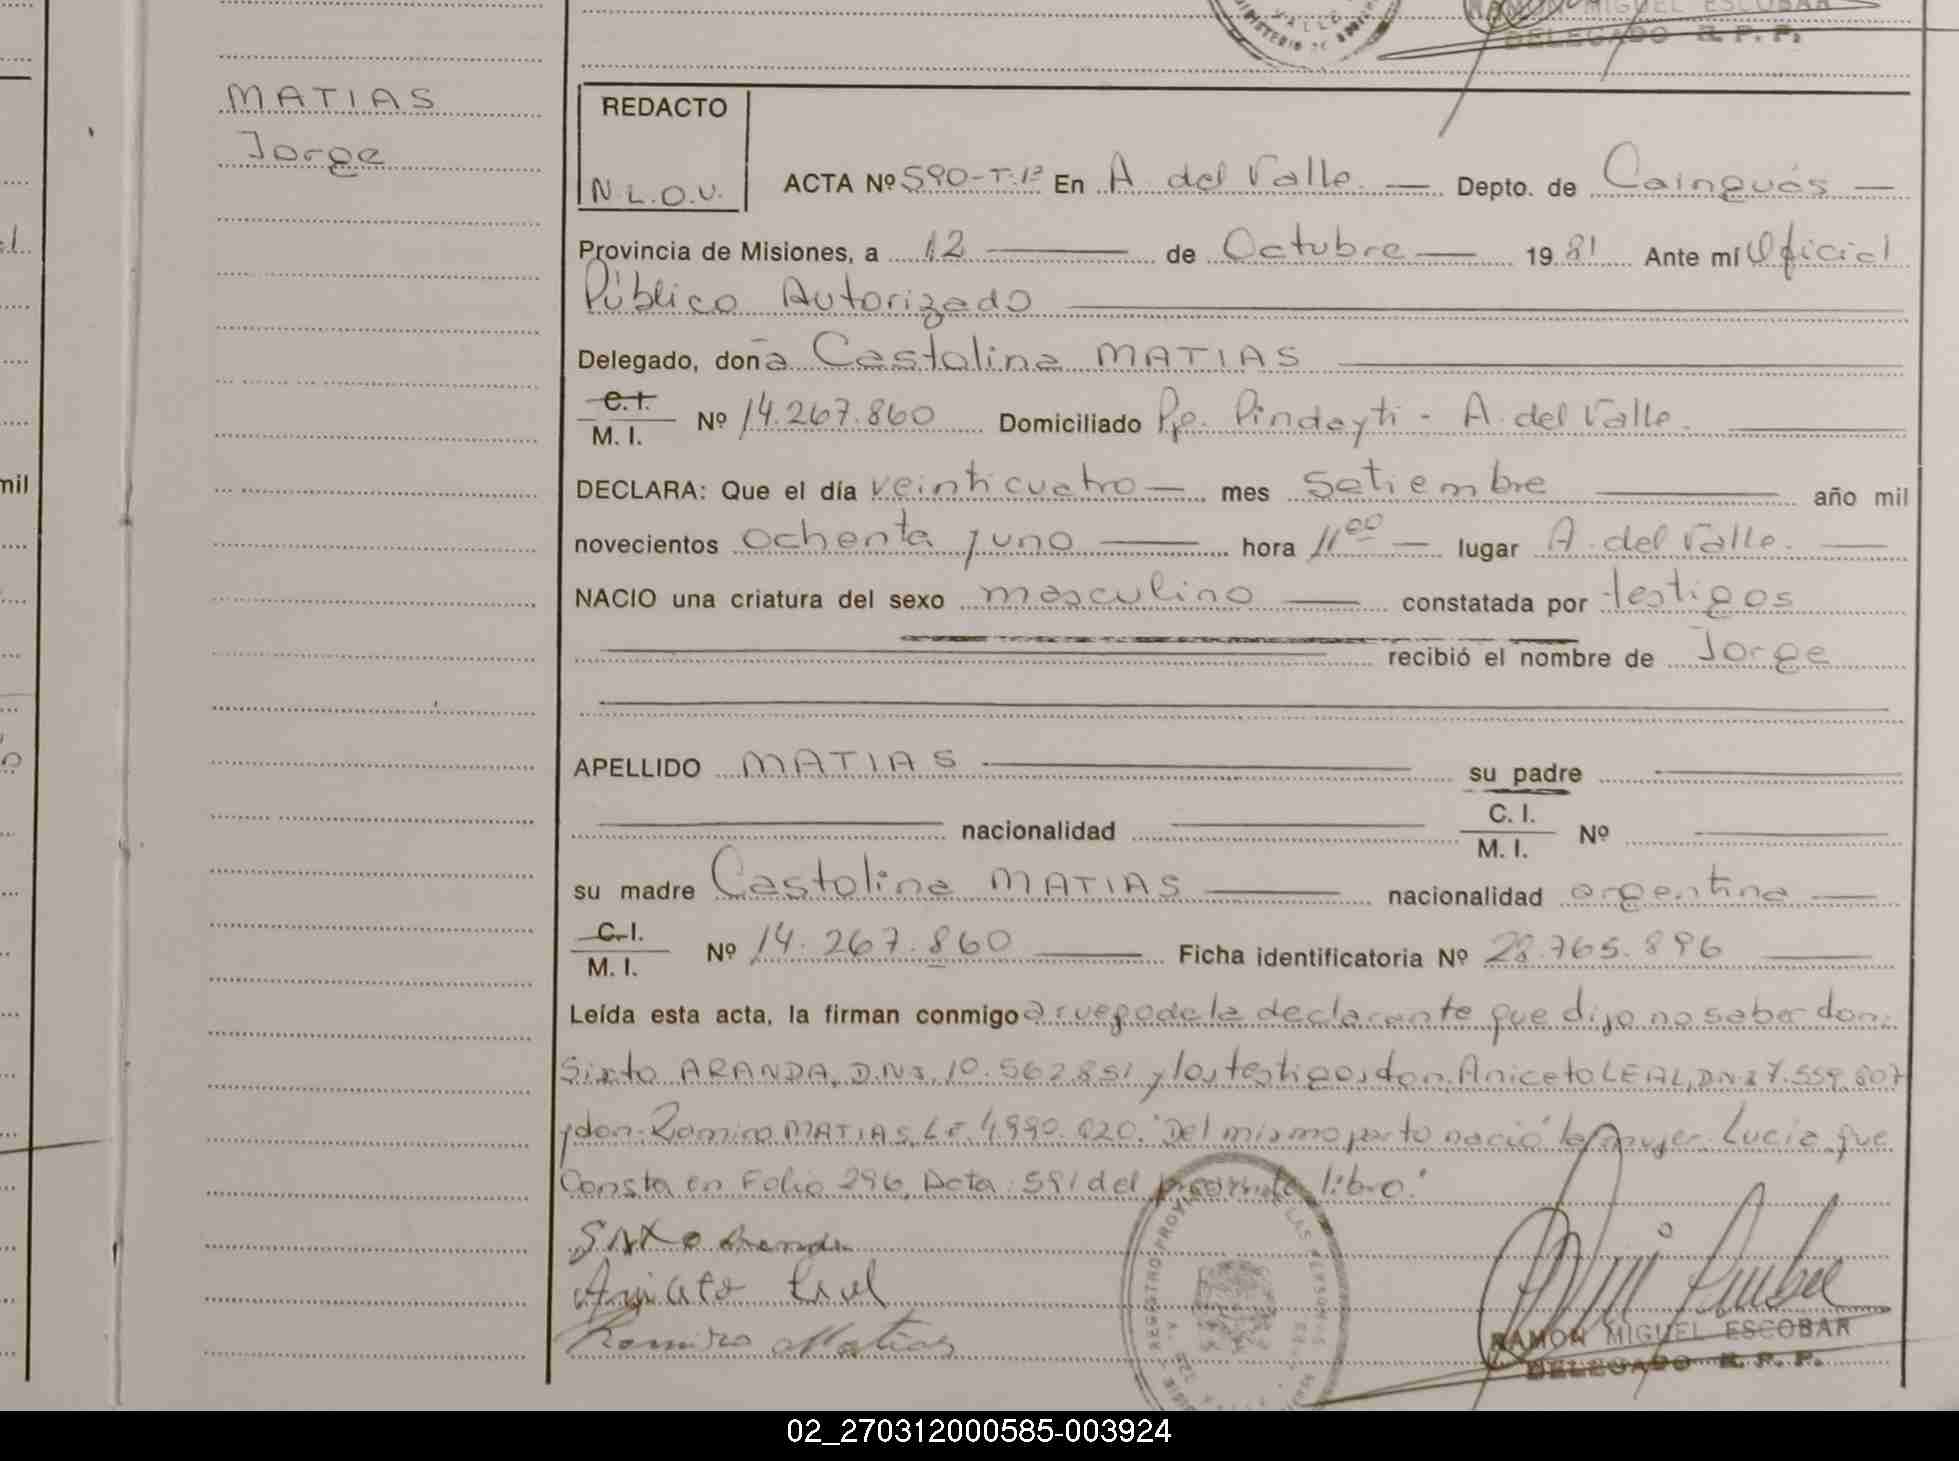 VALLE
MINISTERIO DE
RAMON MIGUEL ESCOBAR
DELEGADO R. P. P.
MATIAS
Jorge
REDACTO
N.L.O.V.
ACTA Nº 590-T.1º En A. del Valle. — Depto. de Cainguás —
Provincia de Misiones, a 12 — de Octubre — 1981 Ante mí Oficial
Público Autorizado
Delegado, doña Castolina MATIAS
C.I.
M. I. Nº 14.267.860 Domiciliado Pje. Pindayti - A. del Valle.
DECLARA: Que el día veinticuatro — mes Setiembre — año mil
novecientos ochenta y uno — hora 11⁰⁰ — lugar A. del Valle. —
NACIO una criatura del sexo masculino — constatada por testigos
recibió el nombre de Jorge
APELLIDO MATIAS — su padre
nacionalidad — C. I.
M. I. Nº
su madre Castolina MATIAS — nacionalidad argentina —
C.I.
M. I. Nº 14.267.860 — Ficha identificatoria Nº 28.765.896 —
Leída esta acta, la firman conmigo a ruego de la declarante que dijo no saber don:
Sixto ARANDA, D.N.I. 10.562.851 y los testigos don. Aniceto LEAL, D.N.I 7.559.807
y don. Ramiro MATIAS, L.E. 4.990.020. "Del mismo parto nació la mujer. Lucia que
Consta en Folio 296, Acta: 591 del presente libro."
Sixto Aranda
Aniceto Leal
Ramiro Matias
REGISTRO PROV. DE LAS PERSONAS
RAMON MIGUEL ESCOBAR
DELEGADO R. P. P.
mil
02_270312000585-003924